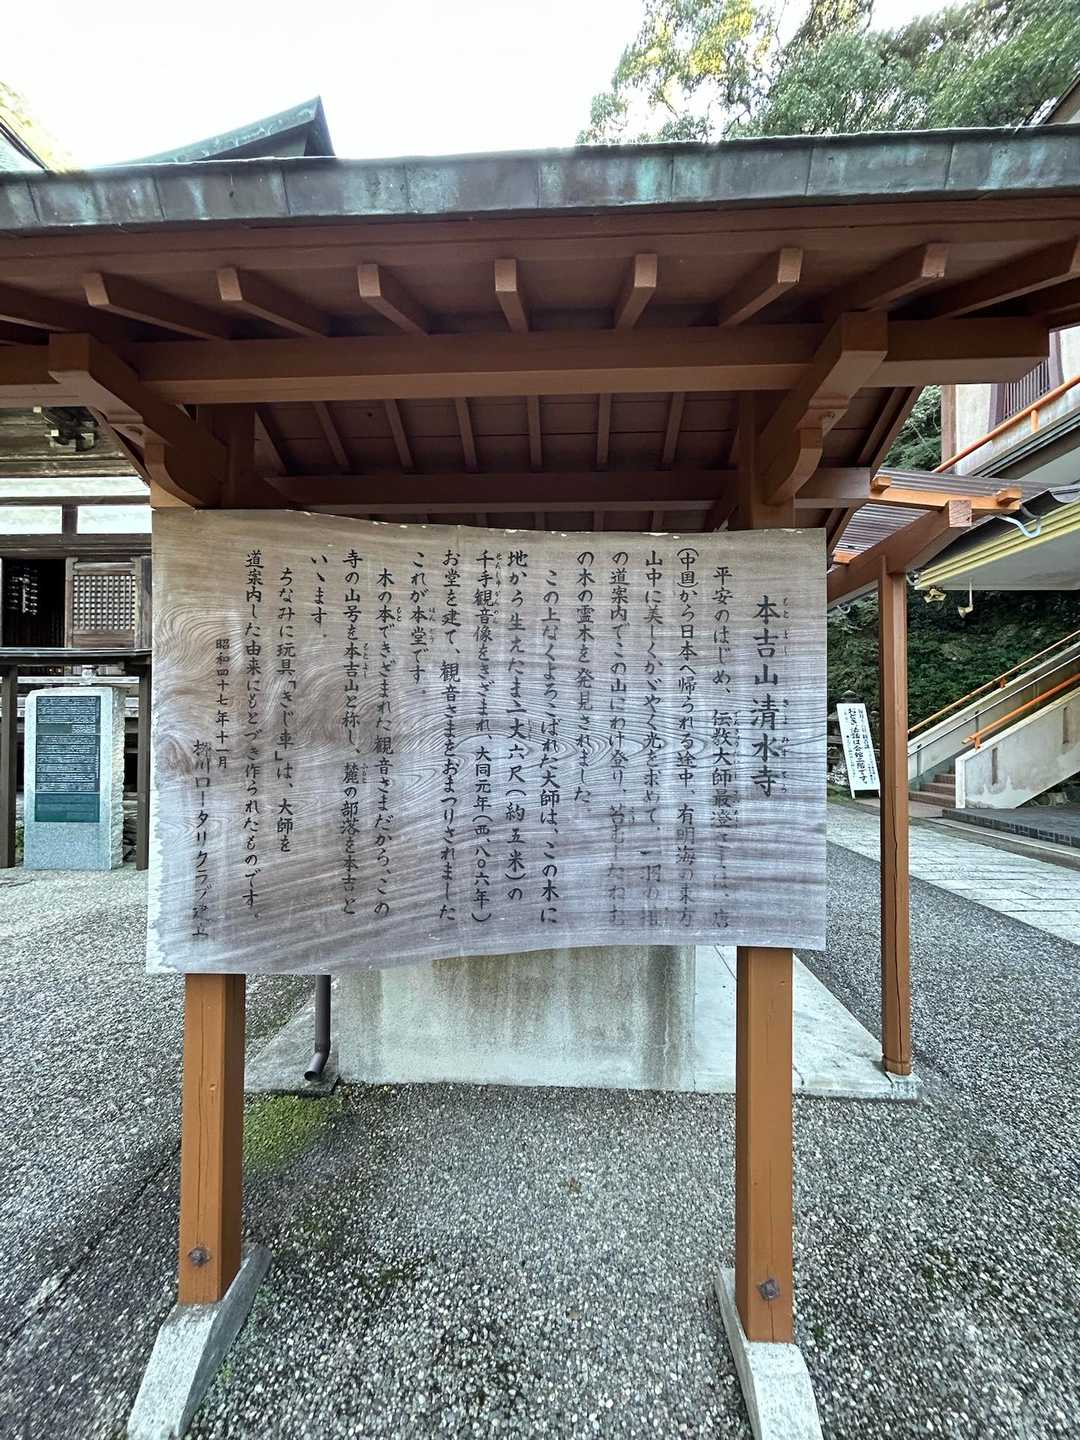 本吉山清水寺
平安のはじめ、伝教大師最澄さまは、唐
(中国から日本へ帰られる途中、有明海の東方
山中に美しくかゞやく光を求めて、一羽の雉
の道案内でこの山にわけ登り、苔むしたねむ
の木の霊木を発見されました。
この上なくよろこばれた大師は、この木に
地から生えたまゝ丈六尺(約五米)の
千手観音像をきざまれ、大同元年(西、八〇六年)
お堂を建て、観音さまをおまつりされました
これが本堂です。
木の本できざまれた観音さまだから、この
寺の山号を本吉山と称し、麓の部落を本吉と
いゝます。
ちなみに玩具「きじ車」は、大師を
道案内した由来にもとづき作られたものです。
昭和四十七年十一月
柳川ロータリクラブ建立
おどき法話は会館二階です。